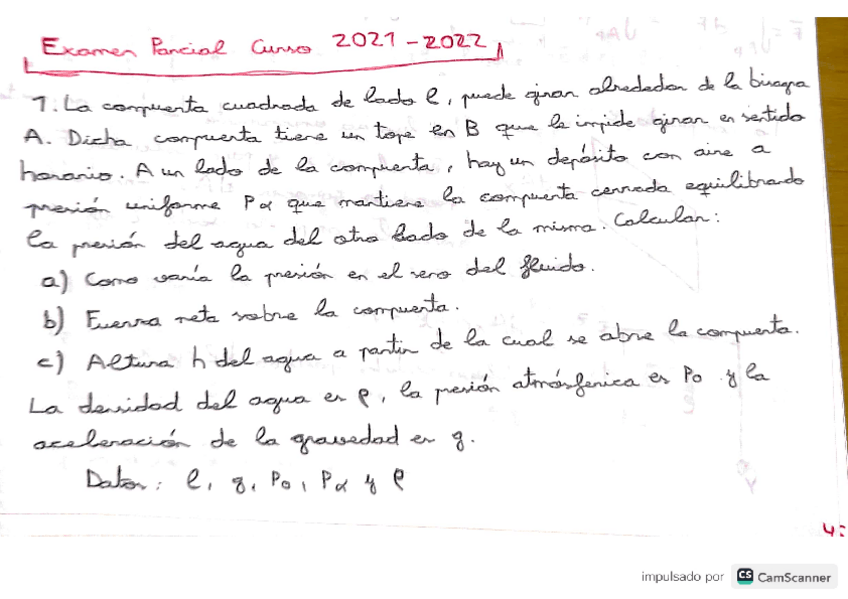 Examen Parcial Curso 2021-2022
1. La compuerta cuadrada de lado l, puede girar alrededor de la bisagra
A. Dicha compuerta tiene un tope en B que le impide girar en sentido
horario. A un lado de la compuerta, hay un depósito con aire a
presión uniforme Pα que mantiene la compuerta cerrada equilibrando
la presión del agua del otro lado de la misma. Calcular:
a) Como varía la presión en el seno del fluido.
b) Fuerza neta sobre la compuerta.
c) Altura h del agua a partir de la cual se abre la compuerta.
La densidad del agua es ρ, la presión atmósferica es Po y la
aceleración de la gravedad es g.
Datos: l, g, Po, Pα y ρ
4:
impulsado por CS CamScanner